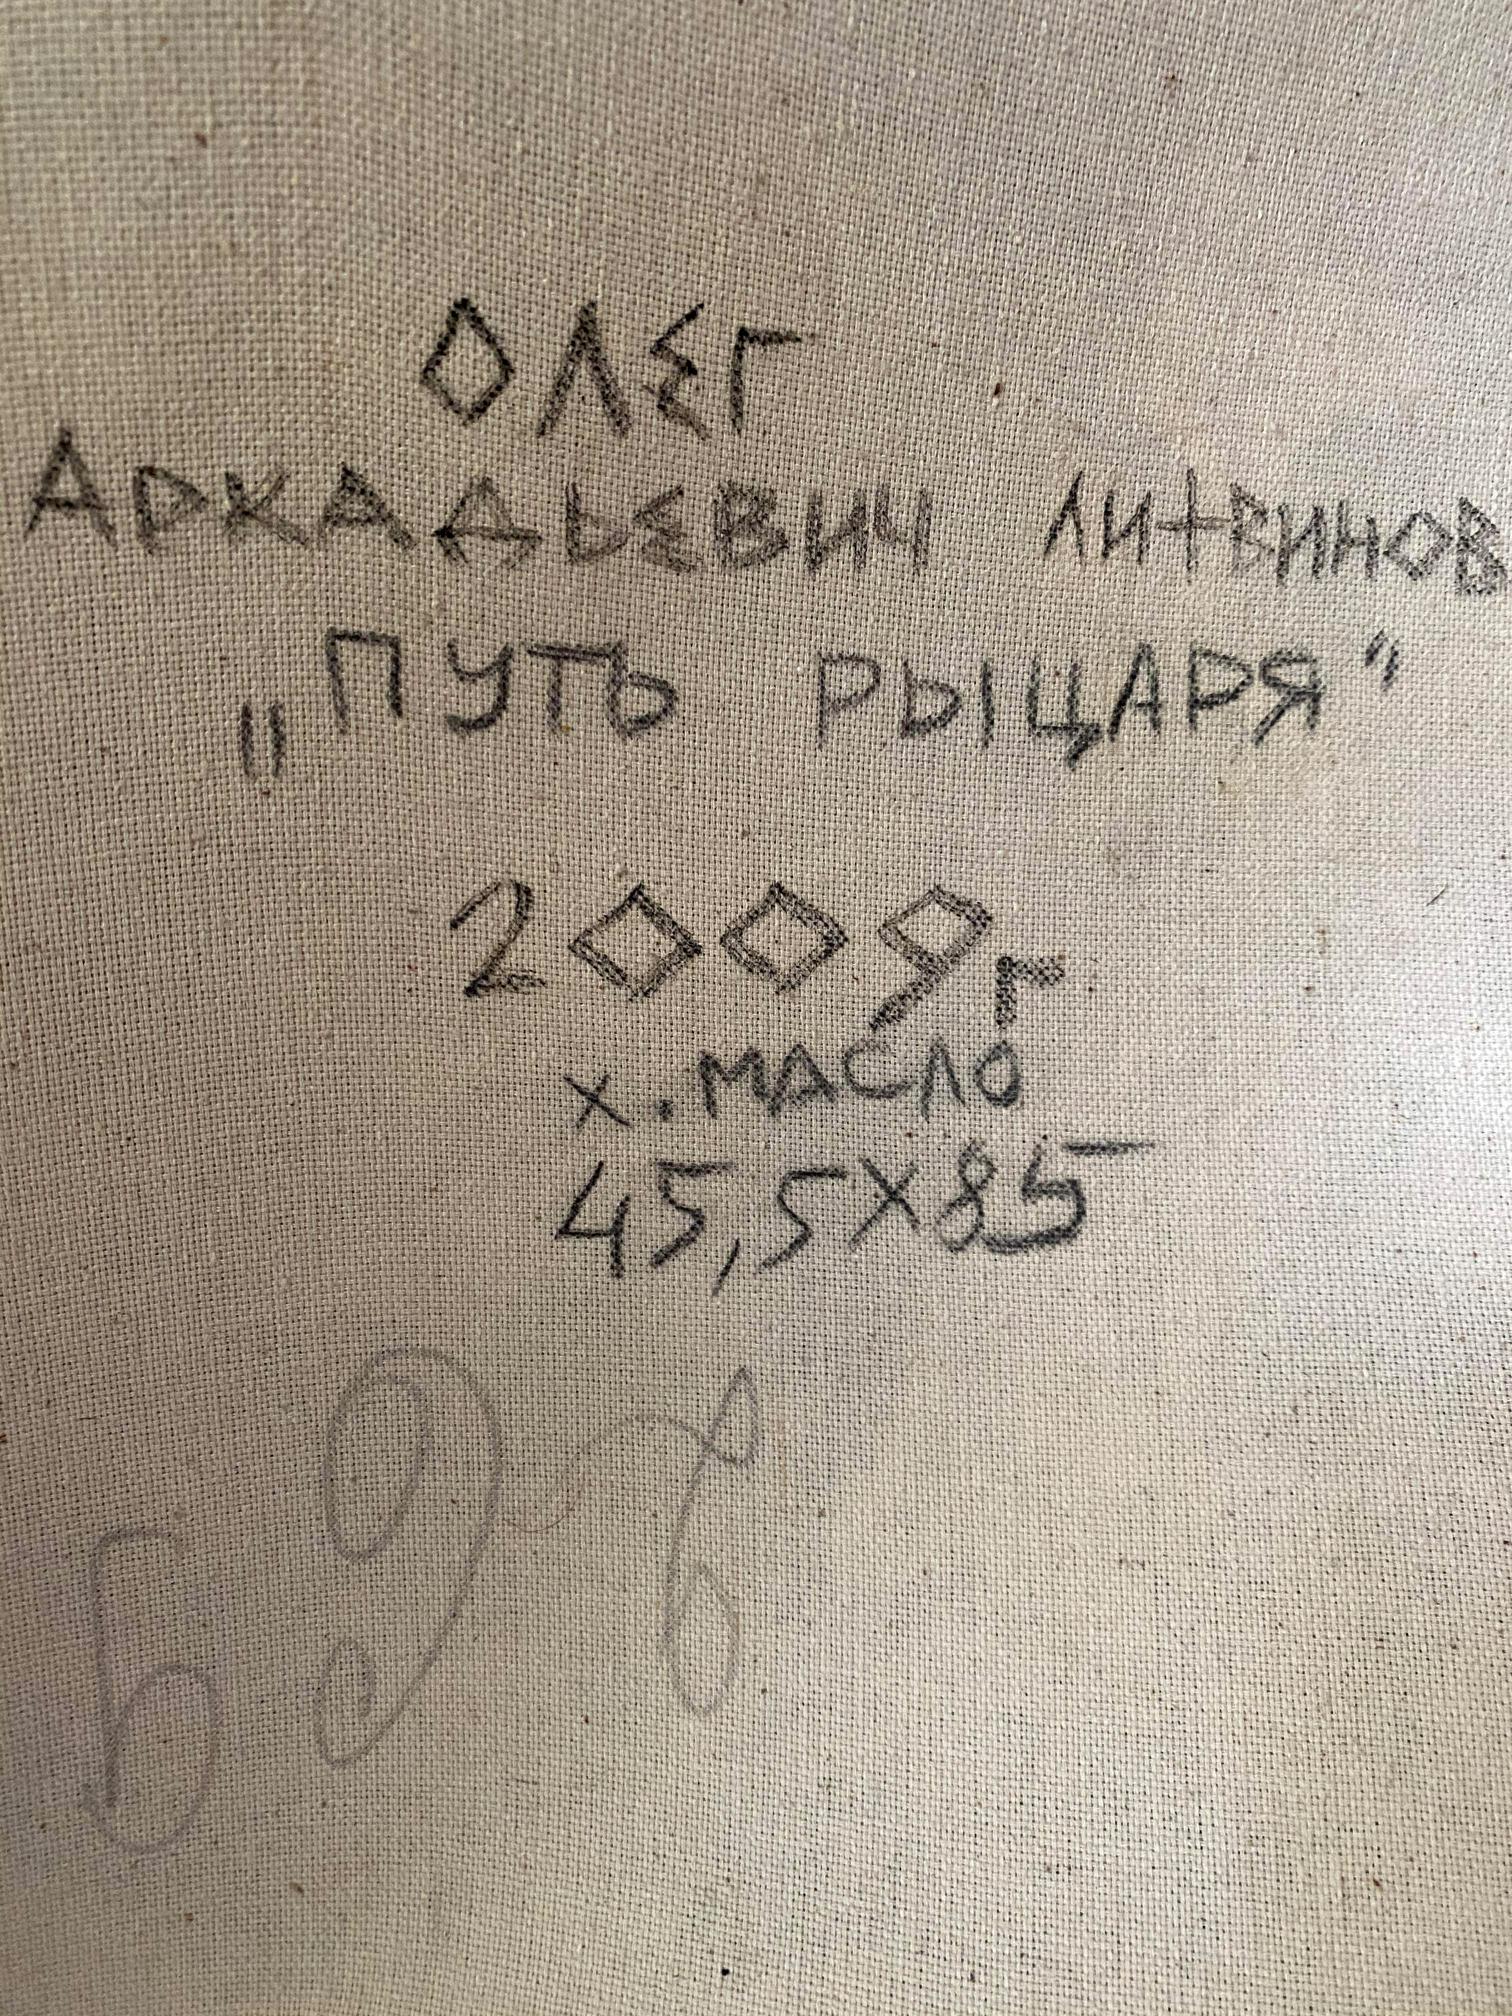 ОЛЕГ
АРКАДЬЕВИЧ ЛИТВИНОВ
„ПУТЬ РЫЦАРЯ"
2009г
х. МАСЛО
45,5Х85